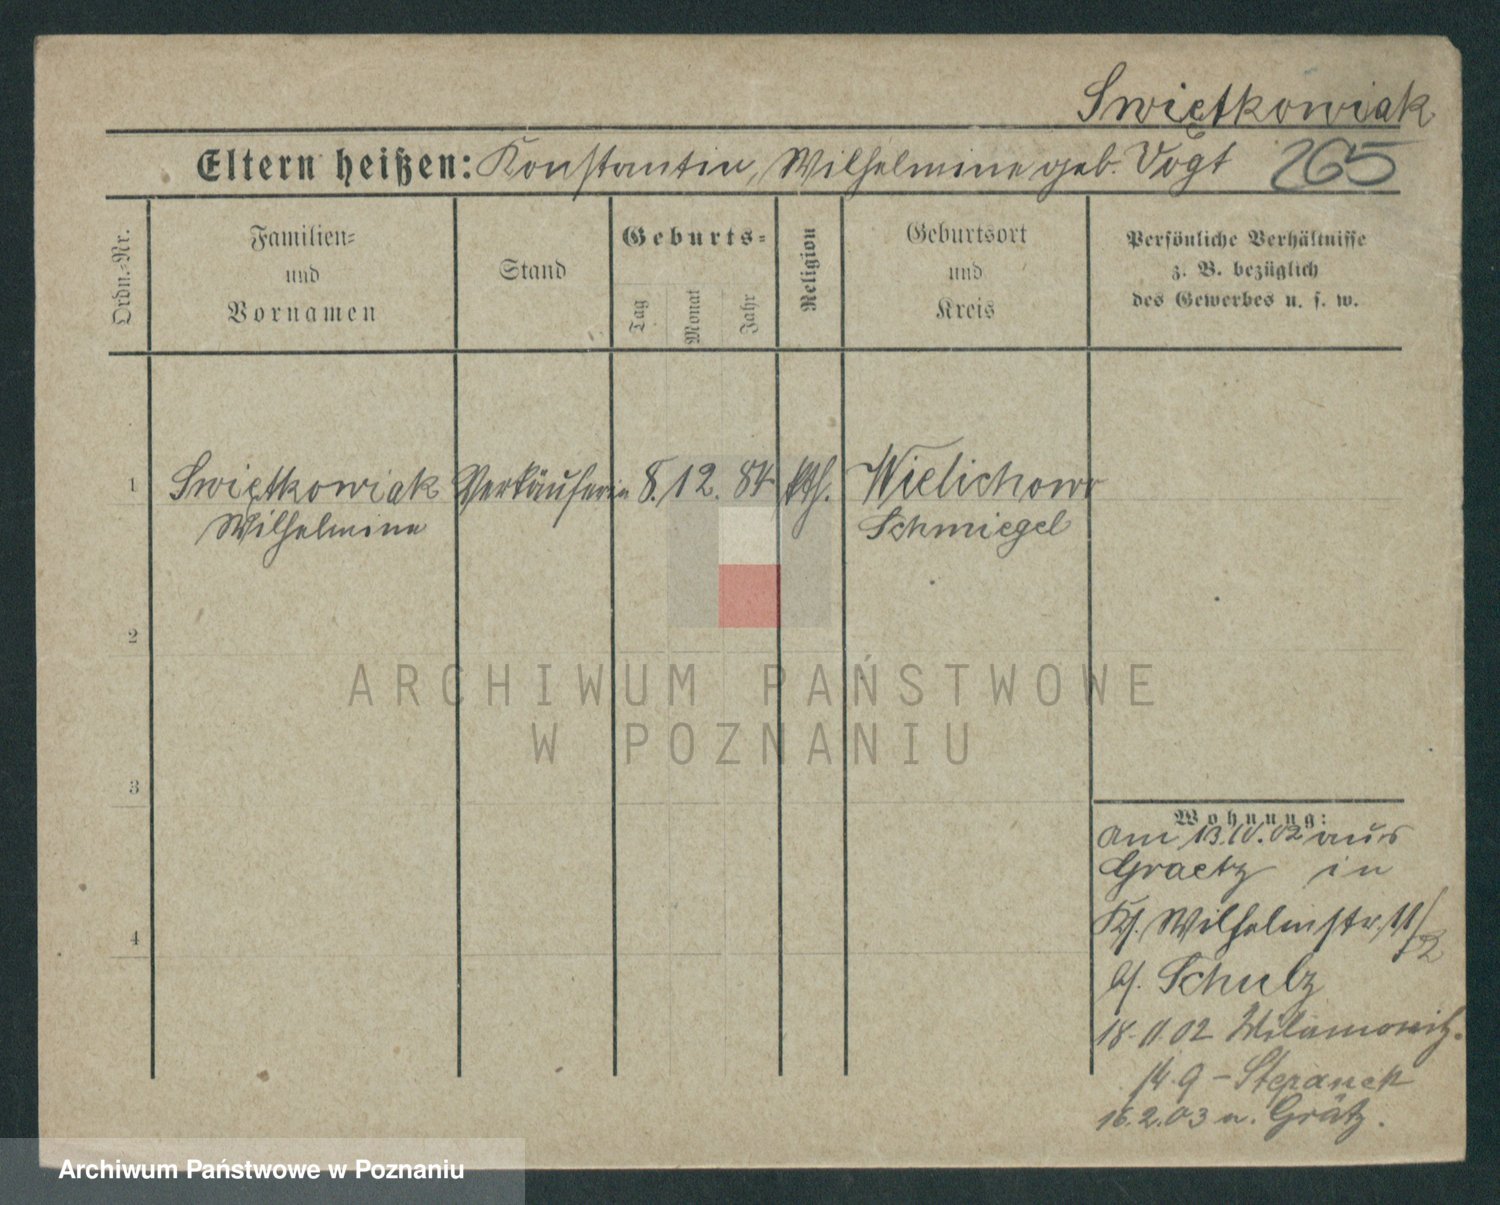 Swiętkowiak
Eltern heißen: Konstantin, Wilhelmine geb. Vogt 265
Ordn.-Nr.
Familien-
und
Vornamen
Stand
Geburts-
Tag
Monat
Jahr
Religion
Geburtsort
und
Kreis
Persönliche Verhältnisse
z. B. bezüglich
des Gewerbes u. s. w.
1 Swiętkowiak Verkäuferin 8. 12. 84 kth. Wielichowo
Wilhelmine Schmiegel
2
3
4
Wohnung:
am 13. 02 aus
Graetz in
Wilhelmstr. 11/2
bf. Schulz
18. 11 02 Wilamowitz.
14. 9 – Stepanek
16. 2. 03 n. Grätz.
ARCHIWUM PAŃSTWOWE
W POZNANIU
Archiwum Państwowe w Poznaniu